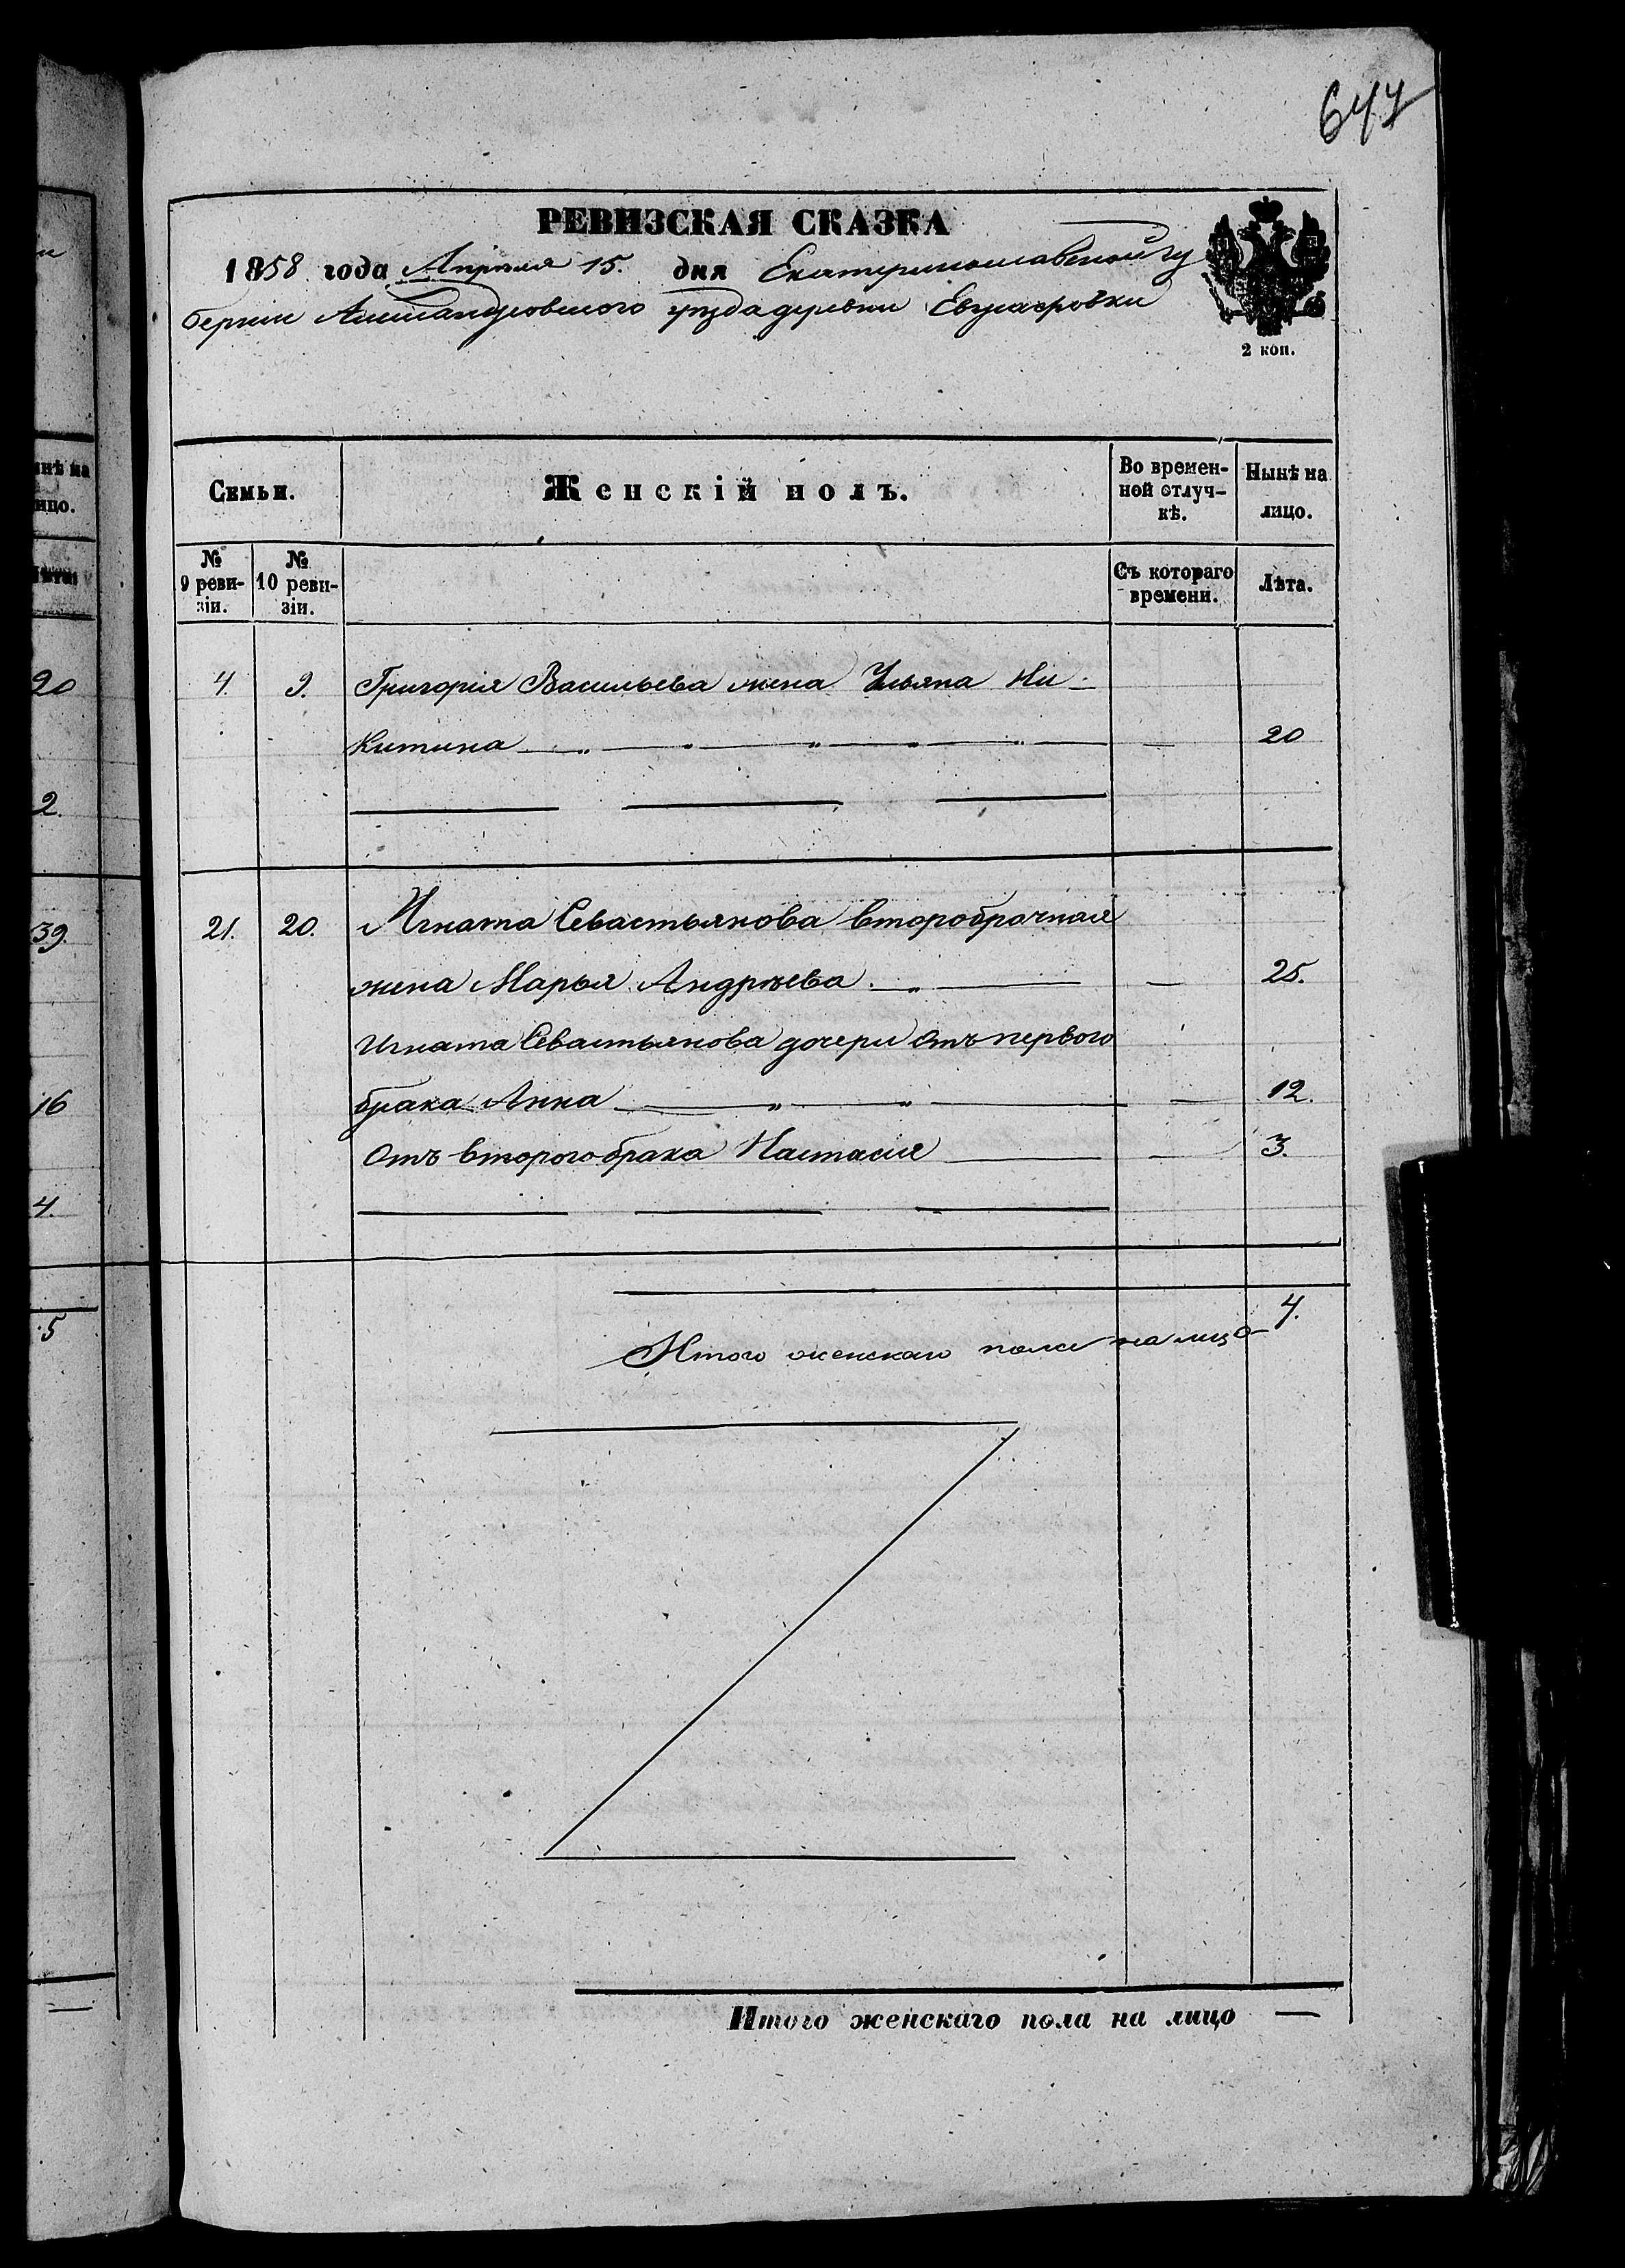 647
РЕВИЗСКАЯ СКАЗКА
1858 года Апрѣля 15. дня Екатеринославской гу
берніи Александровского уѣзда деревни Евграфовки
2 коп.
Семьи.
Женскій полъ.
Во времен-
ной отлуч-
кѣ.
Нынѣ на
лицо.
№
9 реви-
зіи.
№
10 реви-
зіи.
Съ котораго
времени.
Лѣта.
4. 9. Григорія Васильева жена Ульяна Ни-
китина — 20
21. 20. Игната Севастьянова второбрачная
жена Марья Андрѣева — 25.
Игната Севастьянова дочери отъ перваго
брака Анна — 12.
Отъ второго брака Настасія — 3.
Итого женскаго пола на лицо 4.
Итого женскаго пола на лицо —
нѣ на
ицо.
Лѣта.
20
2.
39.
16
4.
5